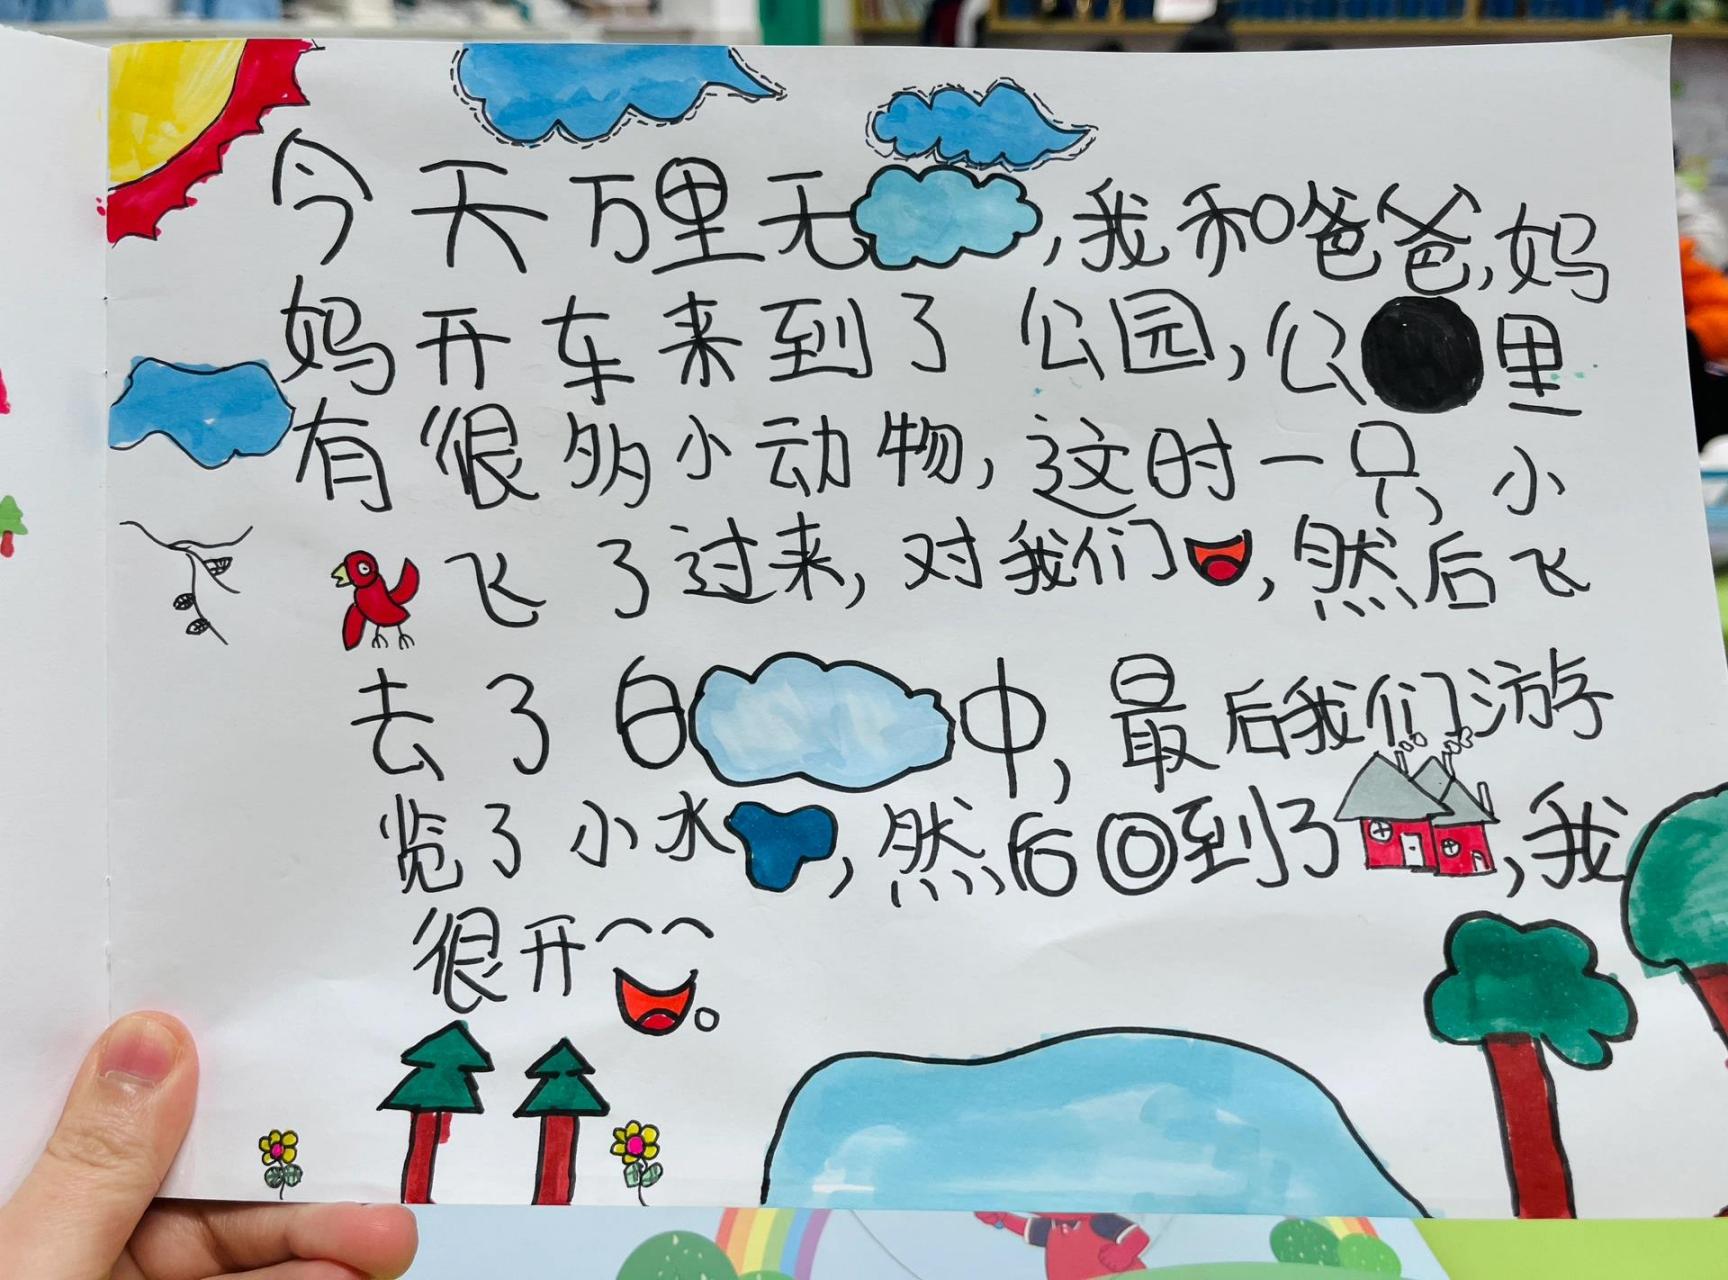 今天万里无,我和爸爸,妈
妈开车来到了公园,公里
有很多小动物,这时一只小
飞了过来,对我们,然后飞
去了白中,最后我们游
览了小水,然后回到了,我
很开。